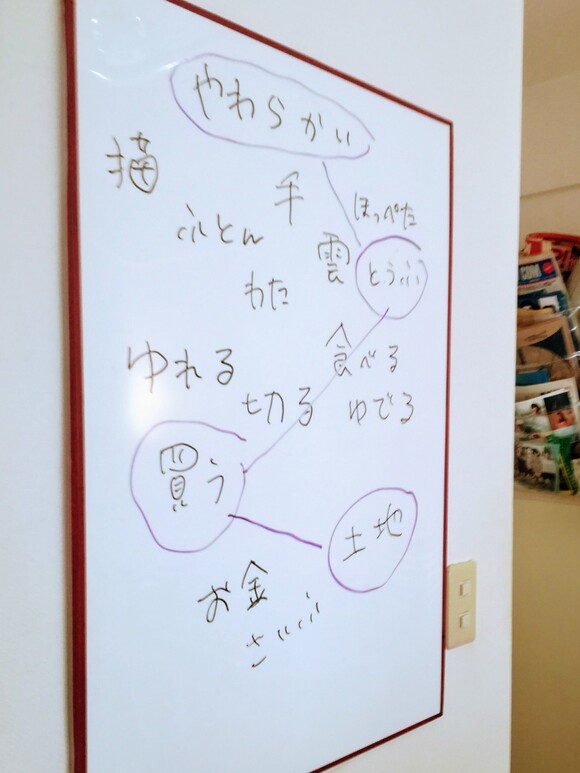 やわらかい
描
手
ほっぺた
ふとん
雲
とうふ
わた
ゆれる
食べる
切る
ゆでる
買う
土地
お金
さいふ